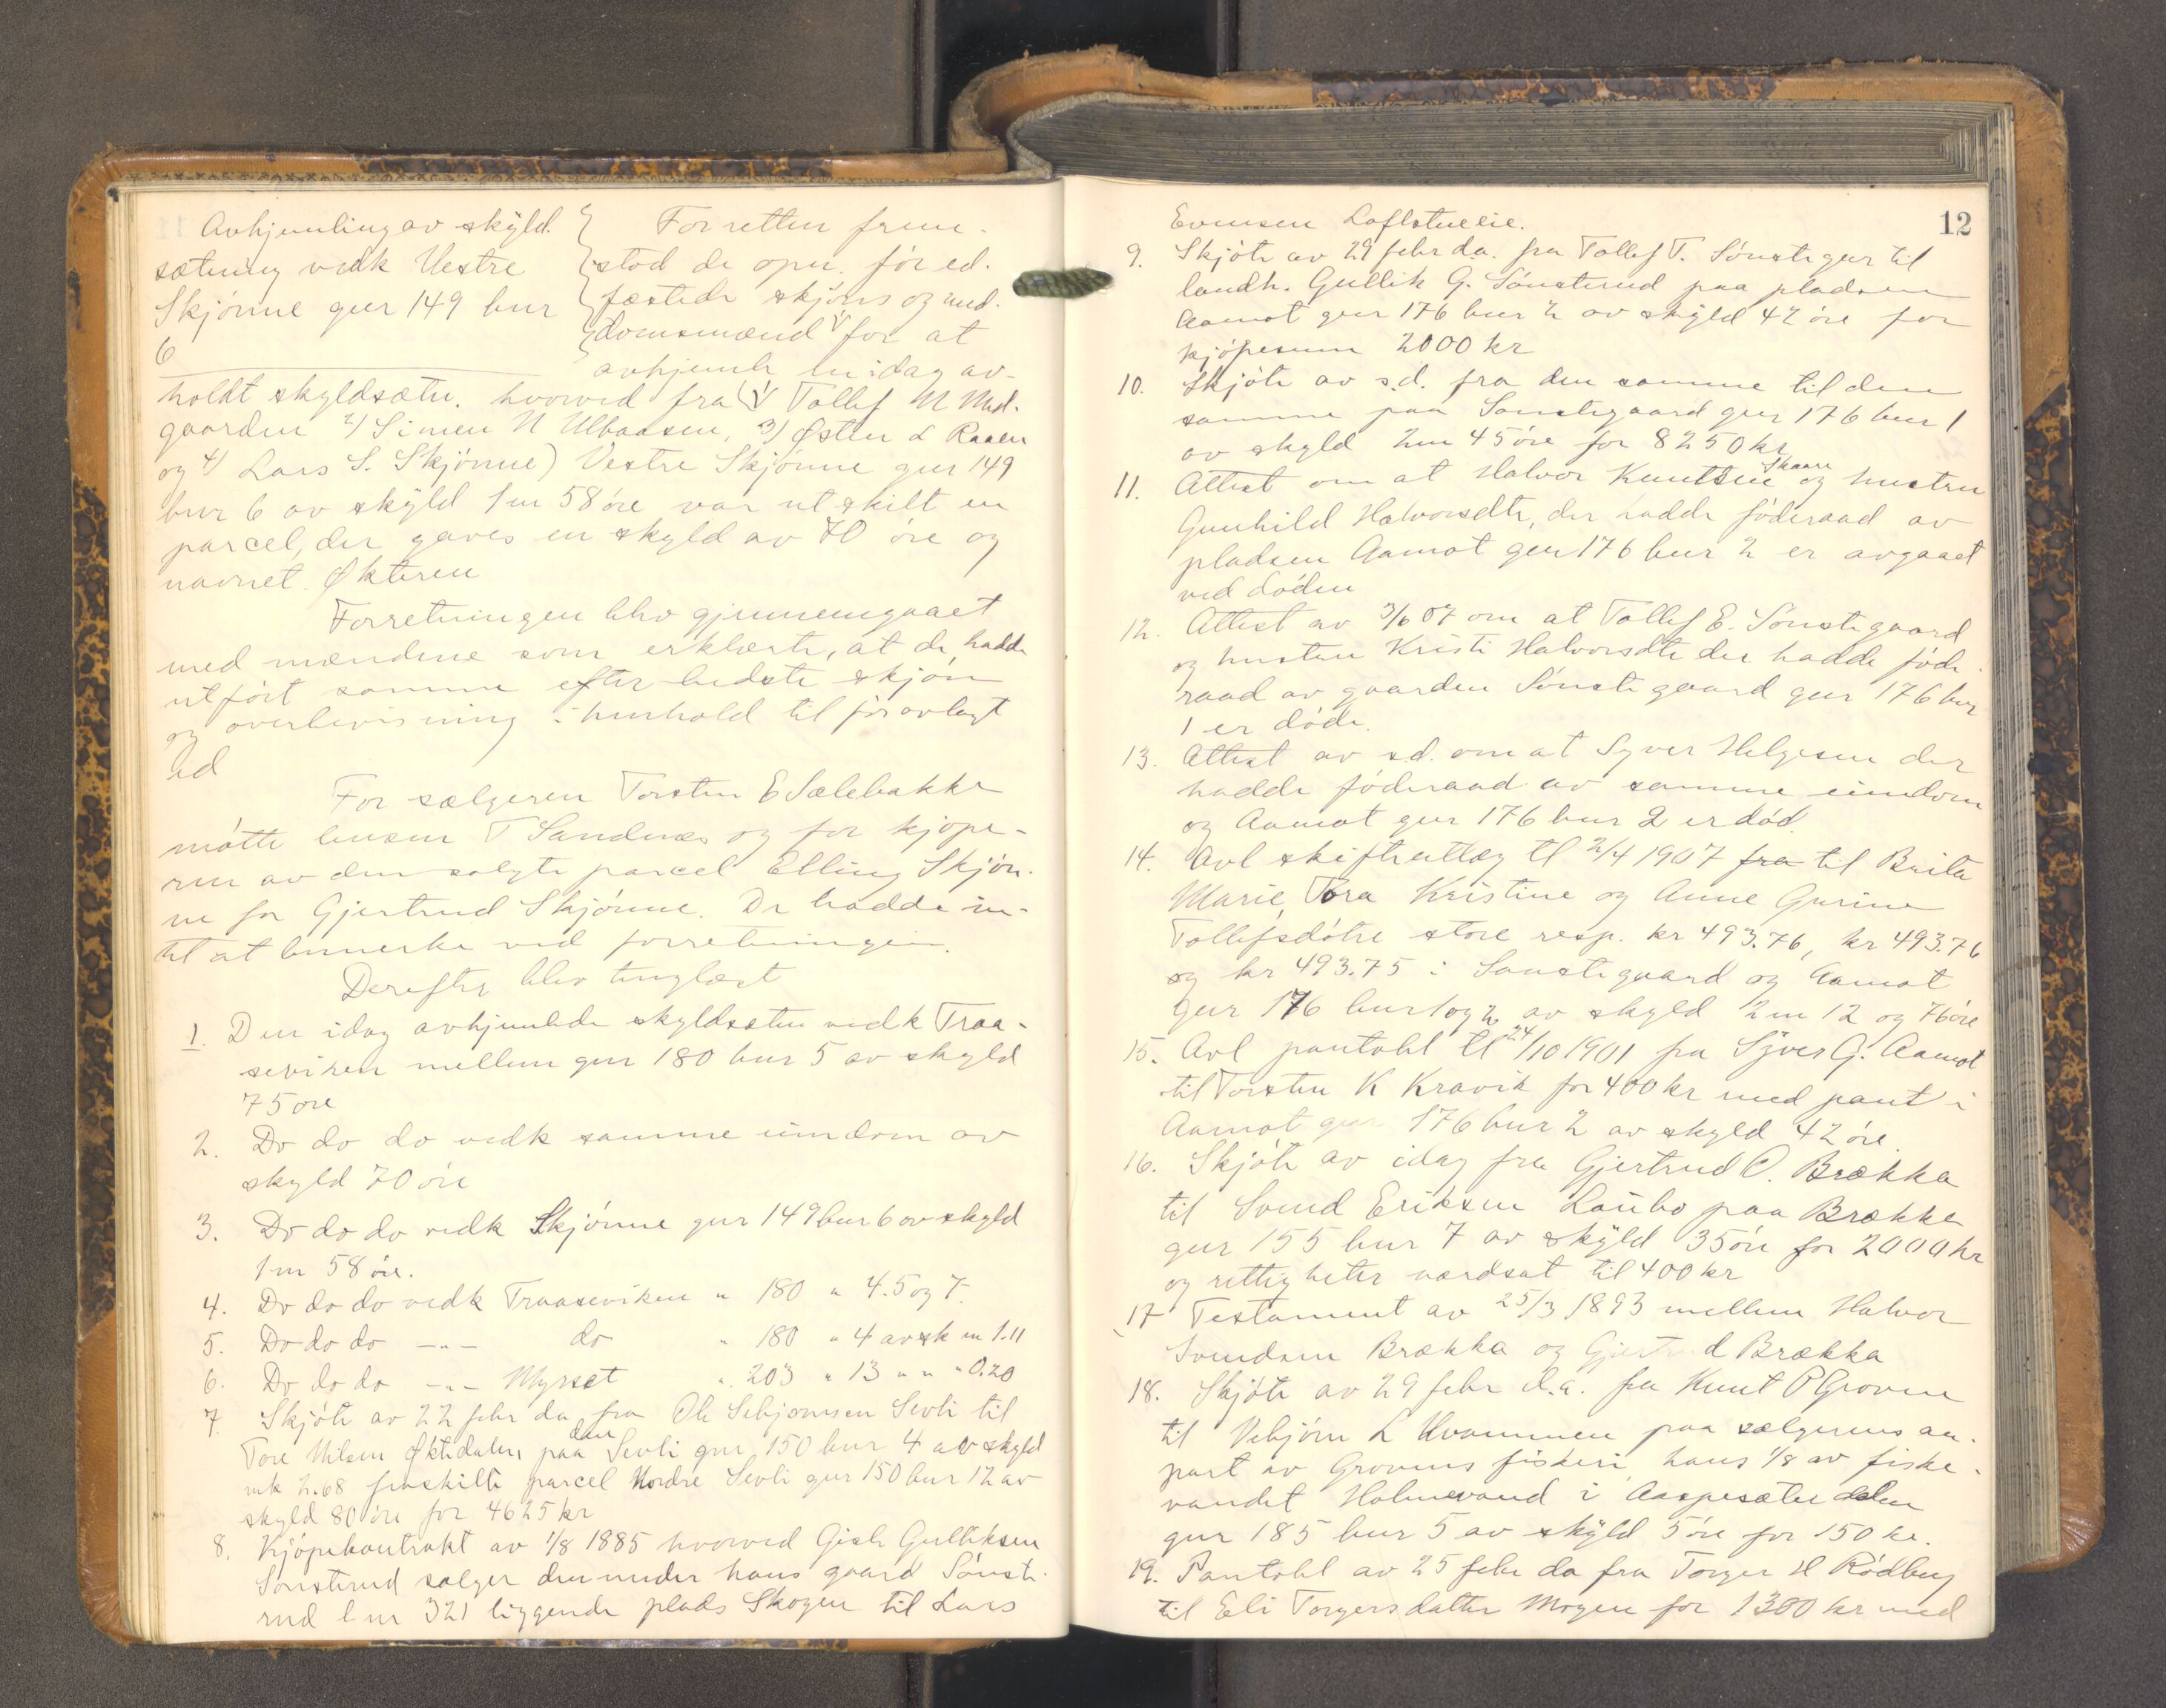 Avhjemling av skyld.
sætning vedk Vestre
Skjønne gnr 149 bnr
6
For retten frem-
stod de opn. før ed.
fæstede skjøns og med.
domsmænd for at
avhjemle en idag av-
holdt skyldsætn. hvorved fra (1) Tollef N Med.
gaarden 2) Simen N Ulbaasen, 3) Østen L Raaen
og 4) Lars S. Skjønne) Vestre Skjønne gnr 149
bnr 6 av skyld 1 m 58 øre var utskilt en
parcel, der gaves en skyld av 70 øre og
navnet Økteren
Forretningen blev gjennemgaaet
med mændene som erklærte, at de hadde
utført samme efter bedste skjøn
og overbevisning i henhold til før avlagt
ed
For sælgeren Torsten E Sælebakke
møtte lensm T Sandnæs og for kjøpe-
ren av den solgte parcel Elling Skjøn-
ne for Gjertrud Skjønne. De hadde in-
tet at bemerke ved forretningen.
Derefter blev tinglæst
1. Den idag avhjemlede skyldsætn vedk Traa-
seviken mellem gnr 180 bnr 5 av skyld
75 øre
2. Do do do vedk samme eiendom av
skyld 70 øre
3. Do do do vedk Skjønne gnr 149 bnr 6 av skyld
1 m 58 øre.
4. Do do do vedk Traaseviken " 180 " 4. 5 og 7.
5. Do do do -"- do " 180 " 4 av sk m 1.11
6. Do do do -"- Myrset " 203 " 13 " " " 0.20
7. Skjøte av 22 febr da fra Ole Sebjørnsen Sevli til
Tore Nilsen Øktedalen paa den Sevli gnr 150 bnr 4 av skyld
mk 2.68 fraskilte parcel Nordre Sevli gnr 150 bnr 12 av
skyld 80 øre for 4625 kr
8. Kjøpekontrakt av 1/8 1885 hvorved Gisle Gulliksen
Sønsterud sælger den under hans gaard Sønste-
rud l nr 321 liggende plads Skogen til Lars
12
Evensen Loftstueeie.
9. Skjøte av 29 febr d.a. fra Tollef T. Sønstegar til
landh. Gullik G. Sønsterud paa pladsen
Aamot gnr 176 bnr 2 av skyld 42 øre for
kjøpesum 2000 kr
10. Skjøte av s.d. fra den samme til den
samme paa Sønstegaard gnr 176 bnr 1
av skyld 2 m 45 øre for 8250 kr
11. Attest om at Halvor Knutsen Skaare og hustru
Gunhild Halvorsdtr, der hadde føderaad av
pladsen Aamot gnr 176 bnr 2 er avgaaet
ved døden
12. Attest av 3/6 07 om at Tollef E. Sønstegaard
og hustru Kristi Halvorsdtr der hadde føde-
raad av gaarden Sønstegaard gnr 176 bnr
1 er døde.
13. Attest av s.d. om at Syver Helgesen der
hadde føderaad av samme eiendom
og Aamot gnr 176 bnr 2 er død.
14. Avl skifteutlæg tl 2/4 1907 fra til Brita
Marie, Tora Kristine og Anne Gurine
Tollefsdøtre store resp. kr 493.76, kr 493.76
og kr 493.75 i Sønstegaard og Aamot
gnr 176 bnr 1 og 2 av skyld 2 m 12 og 76 øre
15. Avl pantobl tl 24/10 1901 fra Syver G. Aamot
til Torsten K Kravik for 400 kr med pant i
Aamot gnr 176 bnr 2 av skyld 42 øre.
16. Skjøte av idag fra Gjertrud O. Brækka
til Svend Eriksen Laubo paa Brække
gnr 155 bnr 7 av skyld 35 øre for 2000 kr
og rettigheter værdsat til 400 kr
17 Testament av 25/3 1893 mellem Halvor
Svendsen Brækka og Gjertrud Brækka
18. Skjøte av 29 febr d.a. fra Knut P Groven
til Vebjørn L Kvammen paa sælgerens an-
part av Grovens fiskeri, hans 1/8 av fiske-
vandet Holmevand i Aaspesæterdalen
gnr 185 bnr 5 av skyld 5 øre for 150 kr.
19. Pantobl av 25 febr da fra Torger H Rødberg
til Eli Torgersdatter Mogen for 1300 kr med